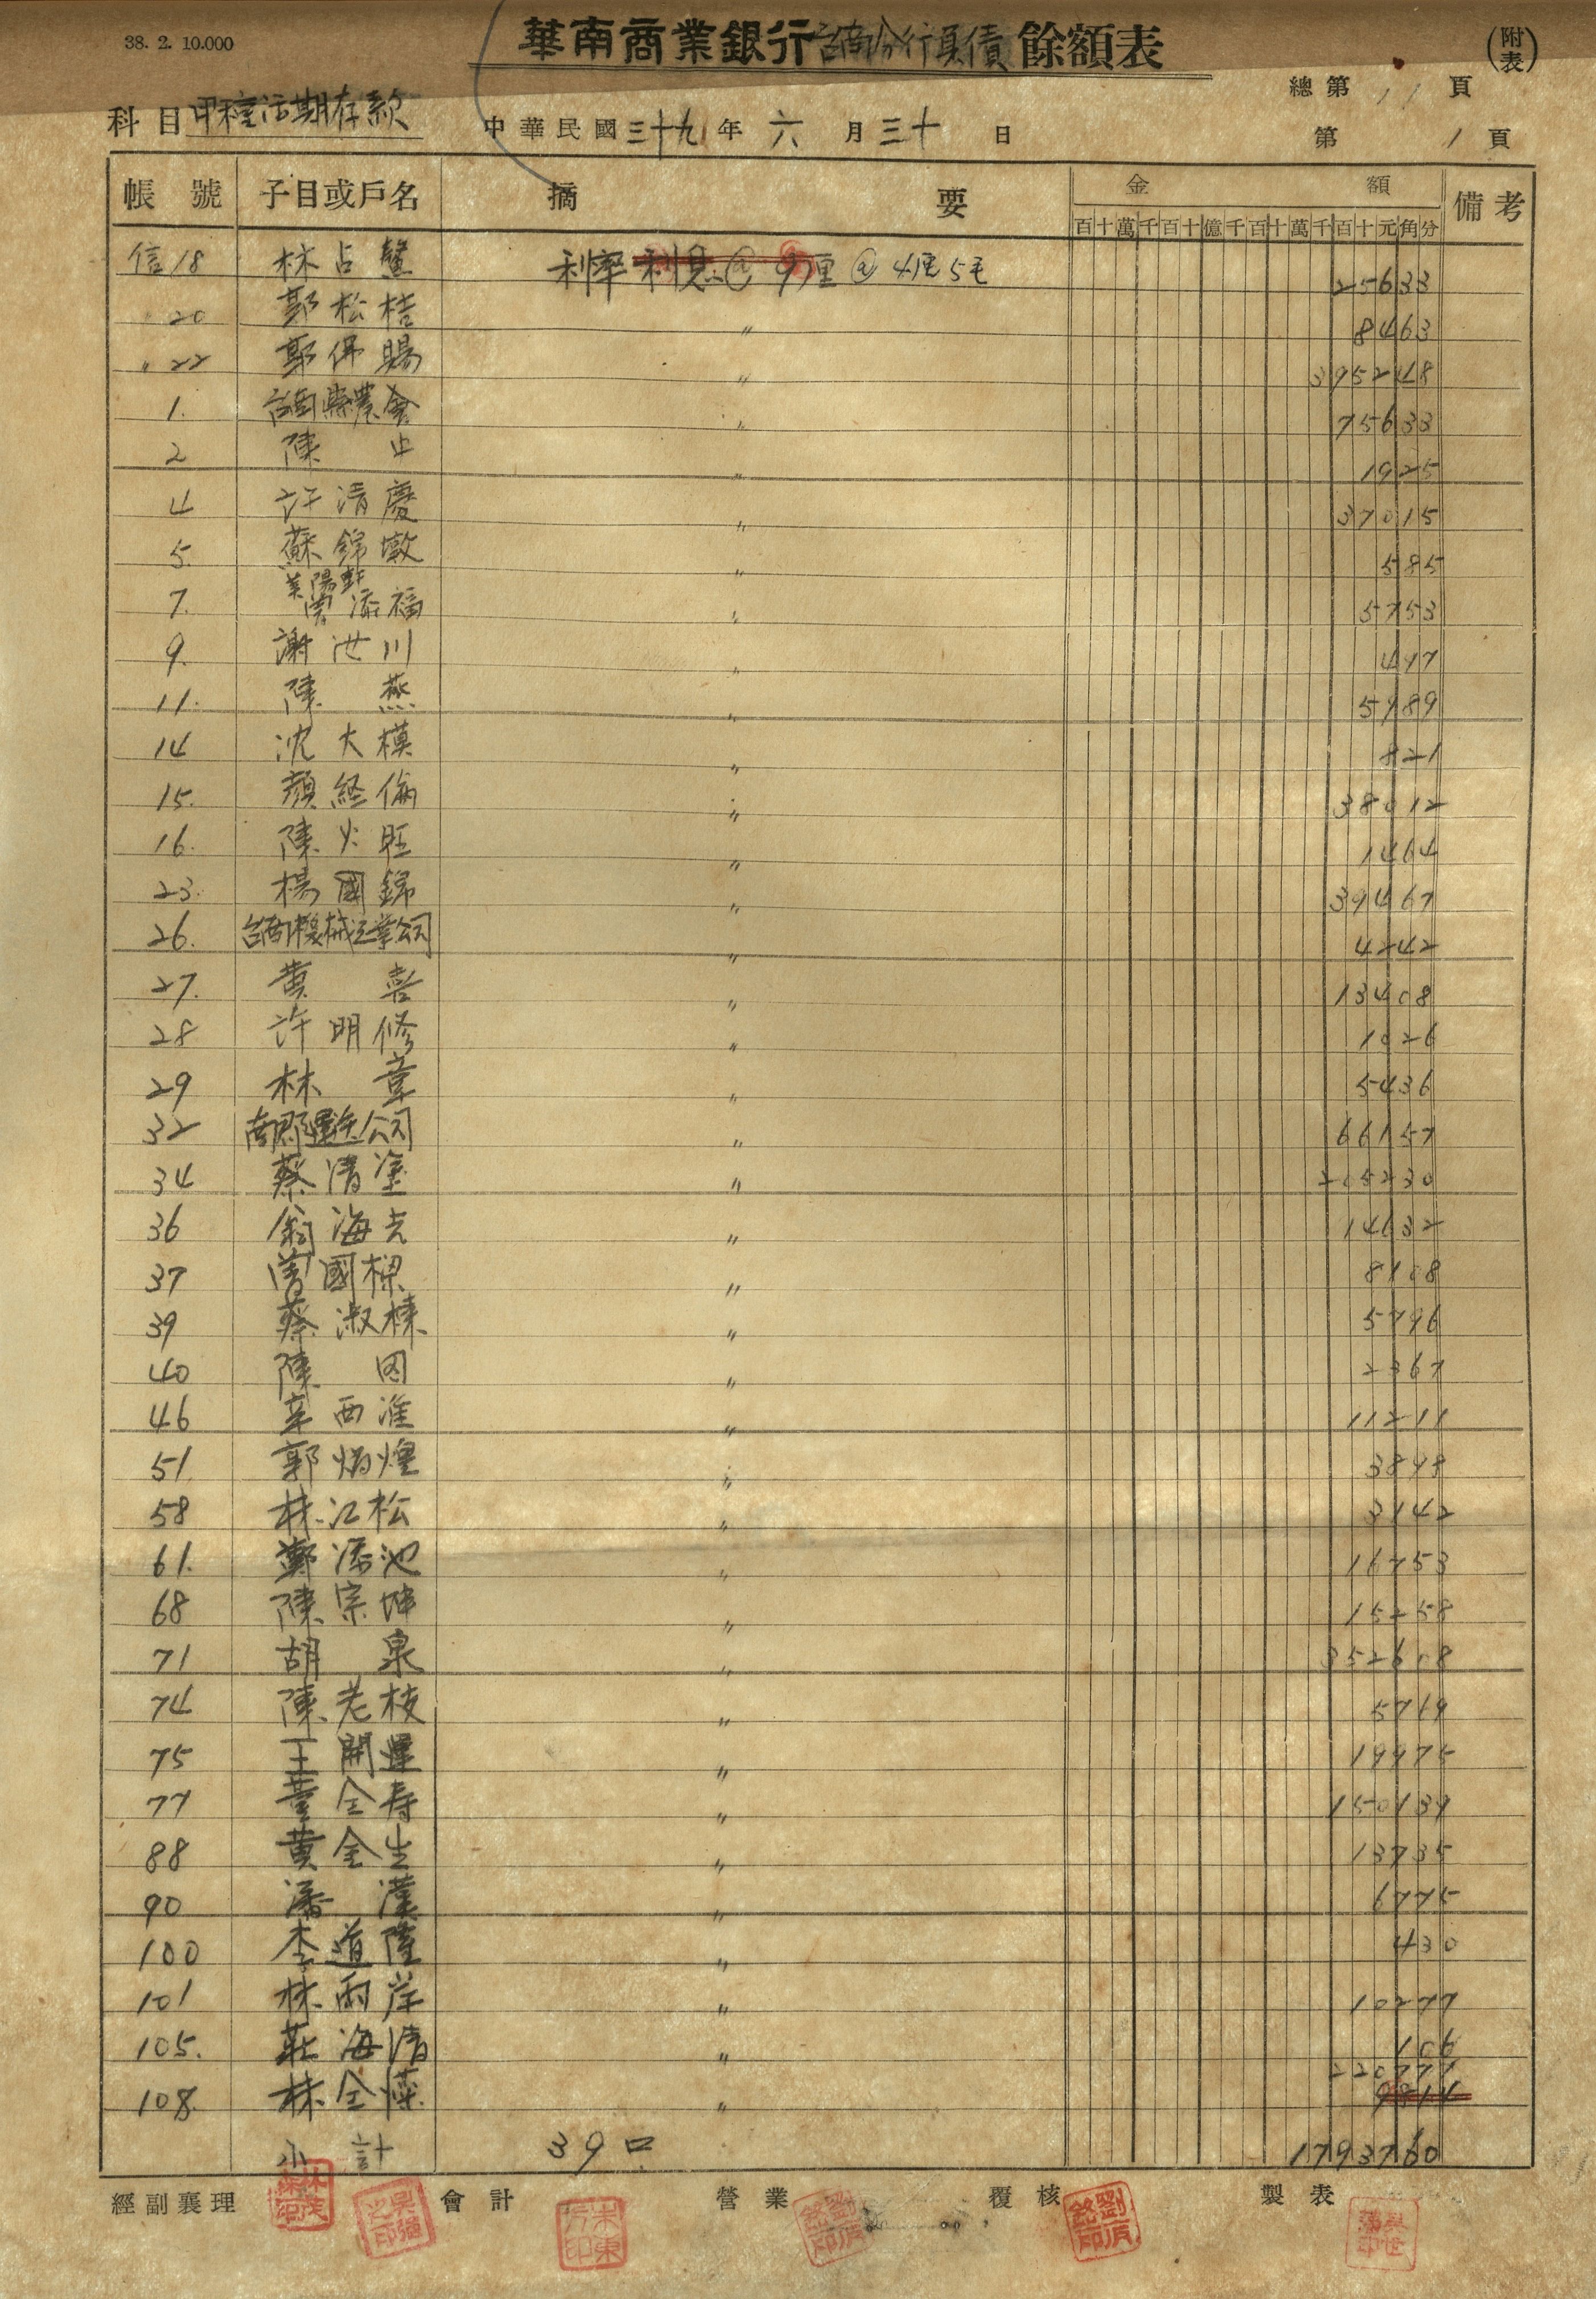 38. 2. 10.000
華南商業銀行台南分行負債餘額表
(附表)
總第 11 頁
科目 甲種活期存款
中華民國三十九年六月三十日
第 1 頁
帳號 子目或戶名 摘要 金額 備考
百十萬千百十億千百十萬千百十元角分
信18 林占鰲 利率 利息@ 9厘 @ 4厘5毛 25633
20 郭松桔 〃 8463
〃22 郭保賜 〃 395248
1. 台南縣農會 〃 75633
2 陳止 〃 1925
4 許清慶 〃 37015
5. 蘇錦墩 〃 585
7. 添福 〃 5753
9. 謝世川 〃 497
11. 陳燕 〃 5989
14 沈大模 〃 821
15. 顏経倫 〃 38012
16. 陳火旺 〃 1464
23. 楊國錦 〃 39467
26. 台南機械工業公司 〃 4242
27. 黃喜 〃 13408
28 許明修 〃 1026
29 林章 〃 5436
32 南郡運送公司 〃 66157
34 蔡清塗 〃 205230
36 翁海 〃 14632
37 曾國樑 〃 8108
39 蔡淑榛 〃 5796
40 陳因 〃 2367
46 辛西淮 〃 11211
51 郭焜煌 〃 3848
58 林江松 〃 3142
61. 鄭添池 〃 16753
68 陳宗坤 〃 15258
71 胡泉 〃 352608
74 陳老枝 〃 5719
75 王開運 〃 19975
77 董全寿 〃 150139
88 黃金生 〃 13735
90 潘漢 〃 6775
100 李道隆 〃 430
101 林雨岸 〃 10277
105. 莊海清 〃 106
108. 林全 〃 220777
小計 39口 1793760
經副襄理 會計 營業 覆核 製表